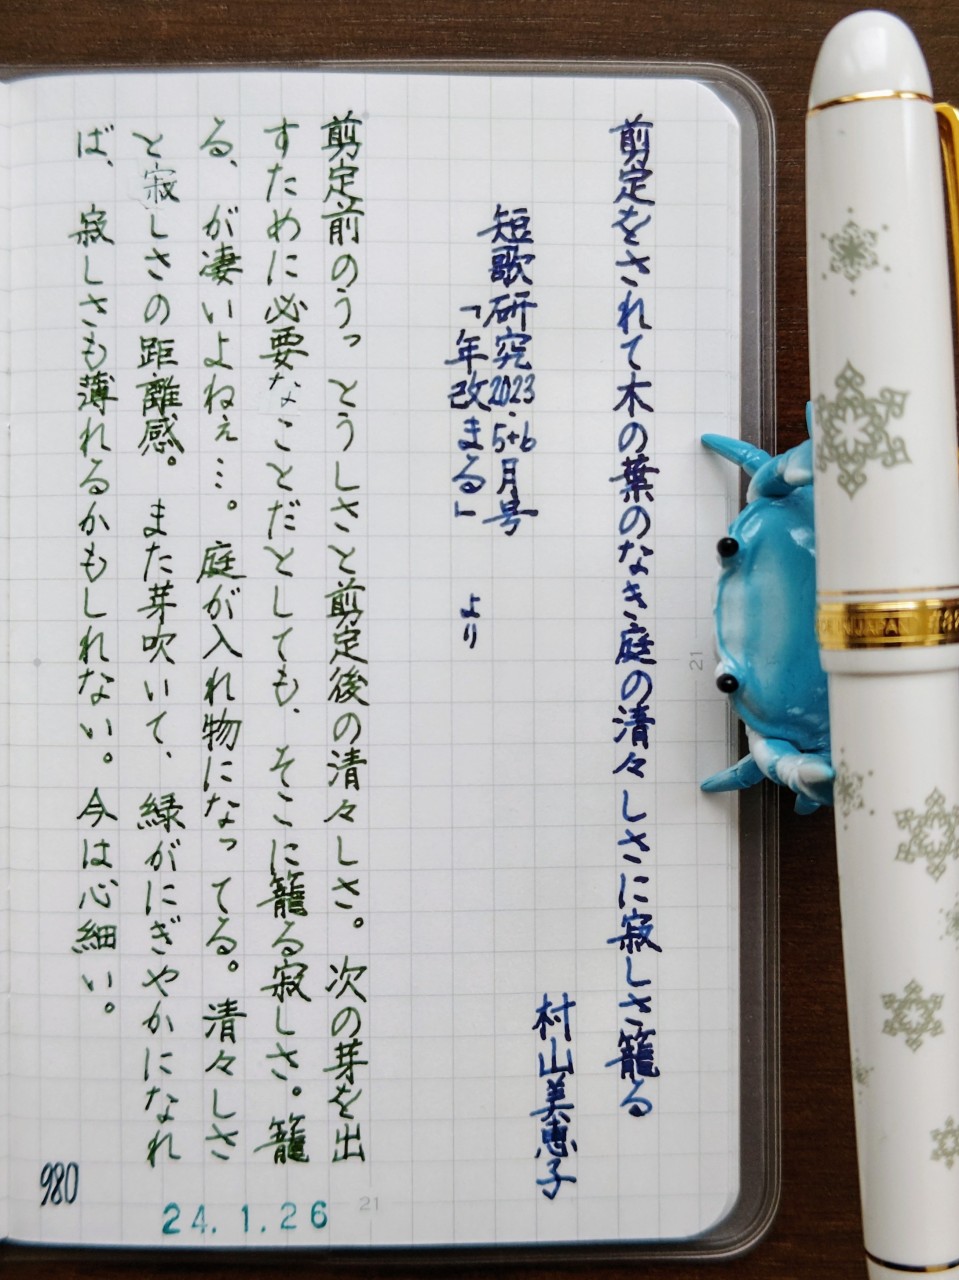 剪定をされて木の葉のなき庭の清々しさに寂しさ籠る
村山美恵子
短歌研究2023.5+6月号
「年改まる」 より
剪定前のうっとうしさと剪定後の清々しさ。次の芽を出
すために必要なことだとしても、そこに籠る寂しさ。籠
る、が凄いよねぇ…。庭が入れ物になってる。清々しさ
と寂しさの距離感。また芽吹いて、緑がにぎやかになれ
ば、寂しさも薄れるかもしれない。今は心細い。
980
24.1.26
21
21
JAPAN